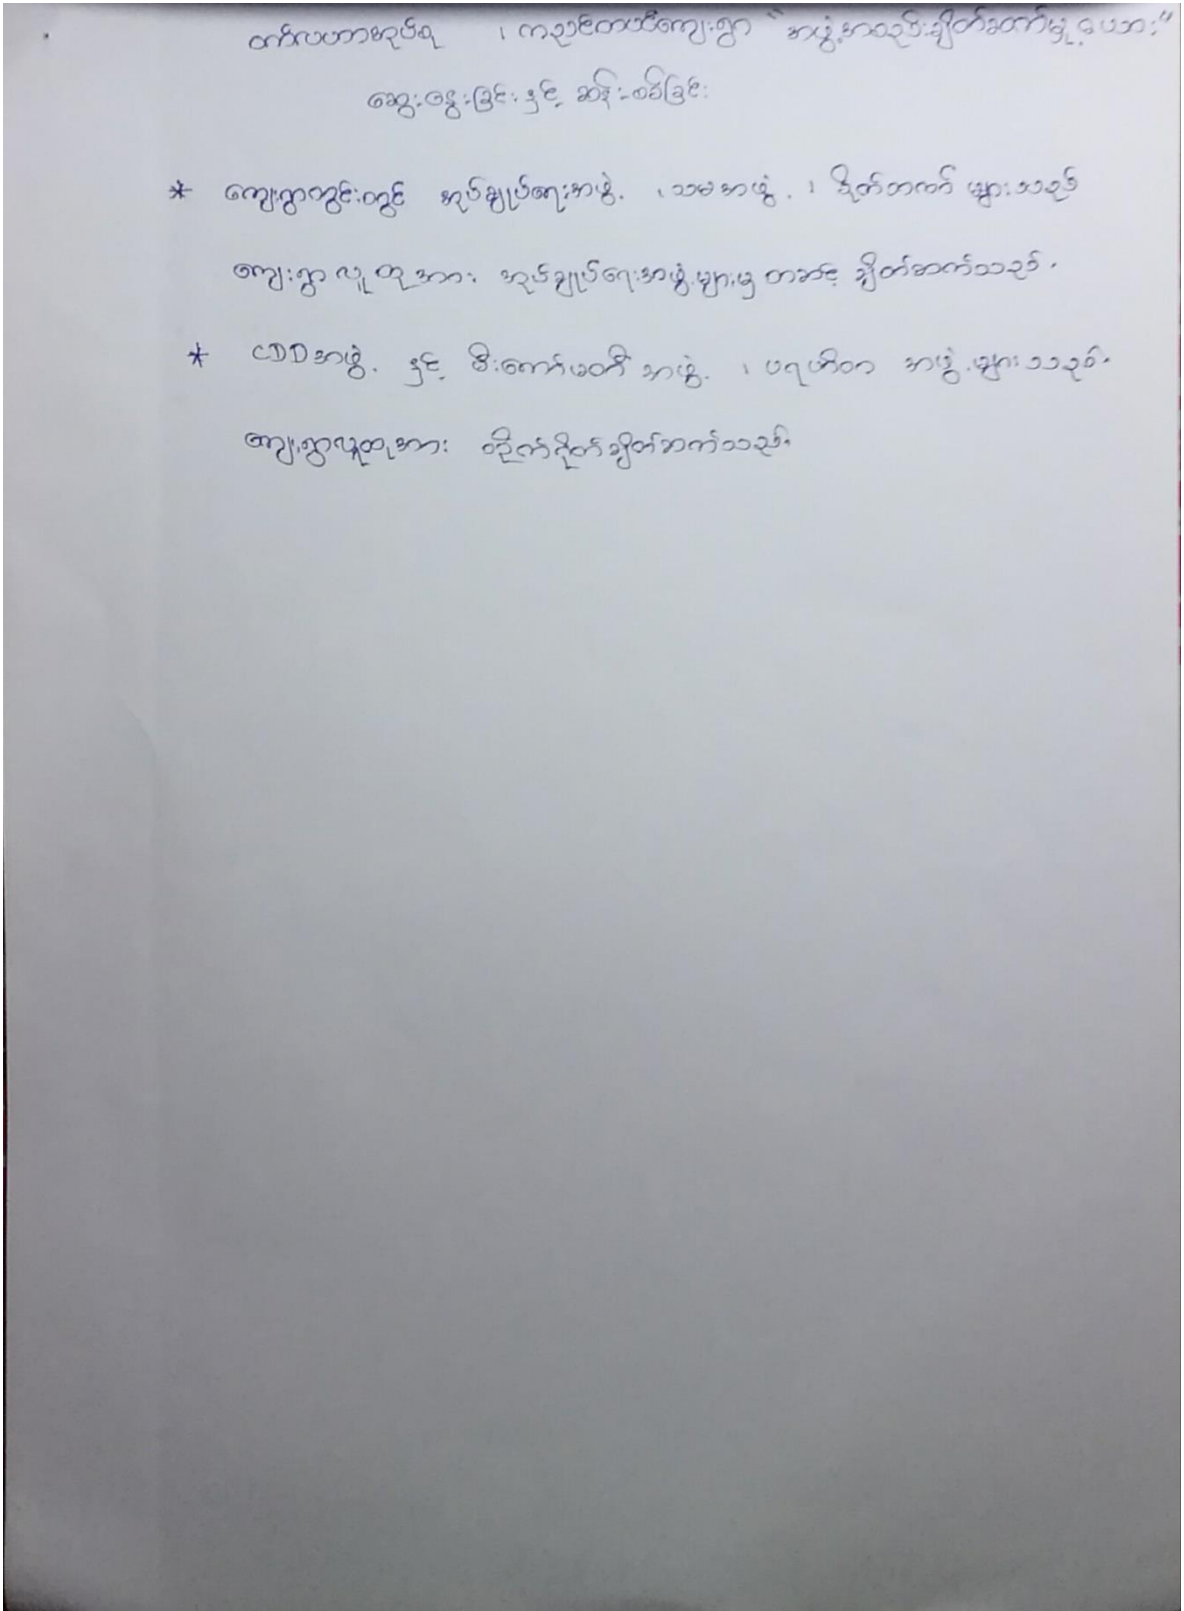 တော်လဟာအုပ်စု ၊ ကညင်တထိကျေးရွာ "အဖွဲ့အစည်းချိတ်ဆက်မှု့ဇယား"
ဆွေးနွေးခြင်းနှင့် ဆန်းစစ်ခြင်း
* ကျေးရွာတွင်းတွင် အုပ်ချုပ်ရေးအဖွဲ့ ၊ သမအဖွဲ့ ၊ ဒိုက်တကာ် များသည်
ကျေးရွာ လူထုအား အုပ်ချုပ်ရေးအဖွဲ့များမှ တဆင့် ချိတ်ဆက်သည်။
* CDD အဖွဲ့ နှင့် မီးကော်မတီ အဖွဲ့ ၊ ပရဟိတ အဖွဲ့များသည်
ကျေးရွာလူထုအား တိုက်ရိုက်ချိတ်ဆက်သည်။